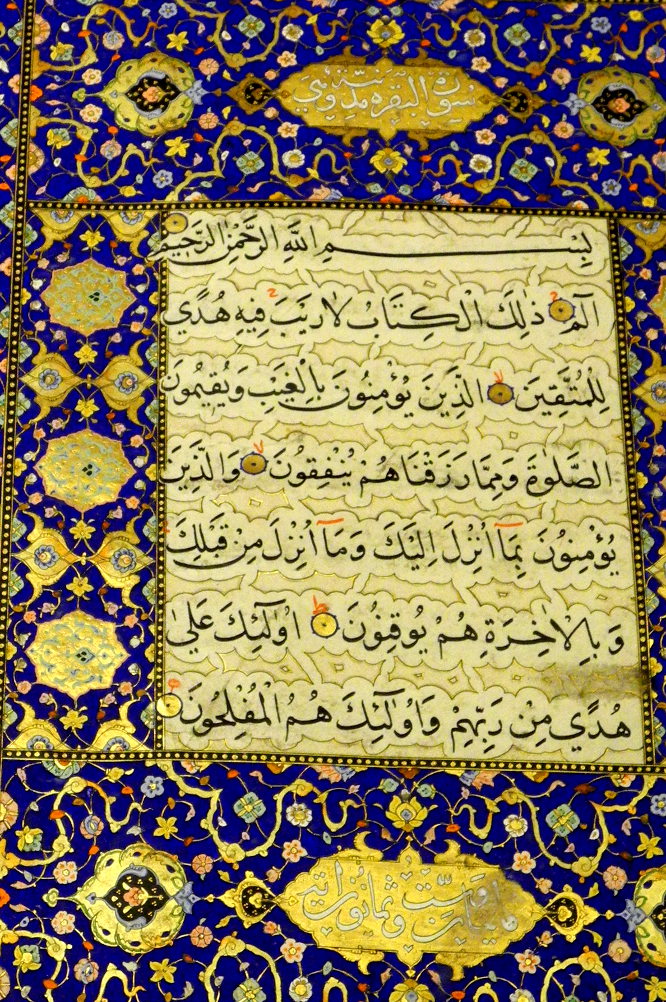 سورة البقرة مدنية وهي
بِسْمِ اللَّهِ الرَّحْمٰنِ الرَّحِيمِ
الٓمٓ ذٰلِكَ الْكِتَابُ لَا رَيْبَ فِيهِ هُدًى
لِلْمُتَّقِينَ الَّذِينَ يُؤْمِنُونَ بِالْغَيْبِ وَيُقِيمُونَ
الصَّلٰوةَ وَمِمَّا رَزَقْنَاهُمْ يُنْفِقُونَ وَالَّذِينَ
يُؤْمِنُونَ بِمَآ اُنْزِلَ اِلَيْكَ وَمَآ اُنْزِلَ مِنْ قَبْلِكَ
وَبِالْاٰخِرَةِ هُمْ يُوقِنُونَ اُولٰٓئِكَ عَلٰى
هُدًى مِنْ رَبِّهِمْ وَاُولٰٓئِكَ هُمُ الْمُفْلِحُونَ
مايتان وست وثمانون اية